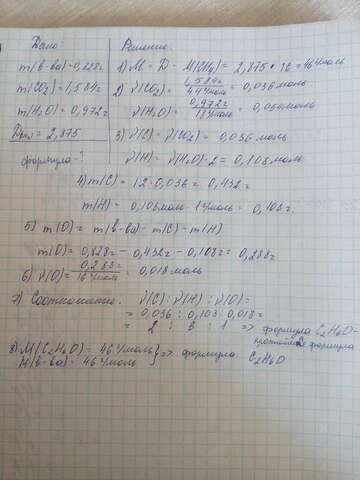 Дано:
m(в-ва)=0,828г
m(CO₂)=1,584г
m(H₂O)=0,972г
D = 2,875
формула-?
Решение
1) M = D · M(CH₄) = 2,875 · 16 = 46 г/моль
2) ν(CO₂) = 1,584г / 44 г/моль = 0,036 моль
ν(H₂O) = 0,972г / 18 г/моль = 0,054 моль
3) ν(C) = ν(CO₂) = 0,036 моль
ν(H) = ν(H₂O)·2 = 0,108 моль
4) m(C) = 12·0,036 = 0,432 г
m(H) = 0,108 моль · 1 г/моль = 0,108г.
5) m(O) = m(в-ва) - m(C) - m(H)
m(O) = 0,828г - 0,432г - 0,108г = 0,288г
6) ν(O) = 0,288г / 16 г/моль = 0,018 моль
7) Соотношение. ν(C) : ν(H) : ν(O) =
= 0,036 : 0,108 : 0,018 =
= 2 : 6 : 1 => формула C₂H₆O-
простейшая формула
8) M(C₂H₆O) = 46 г/моль } => формула C₂H₆O
M(в-ва) = 46 г/моль